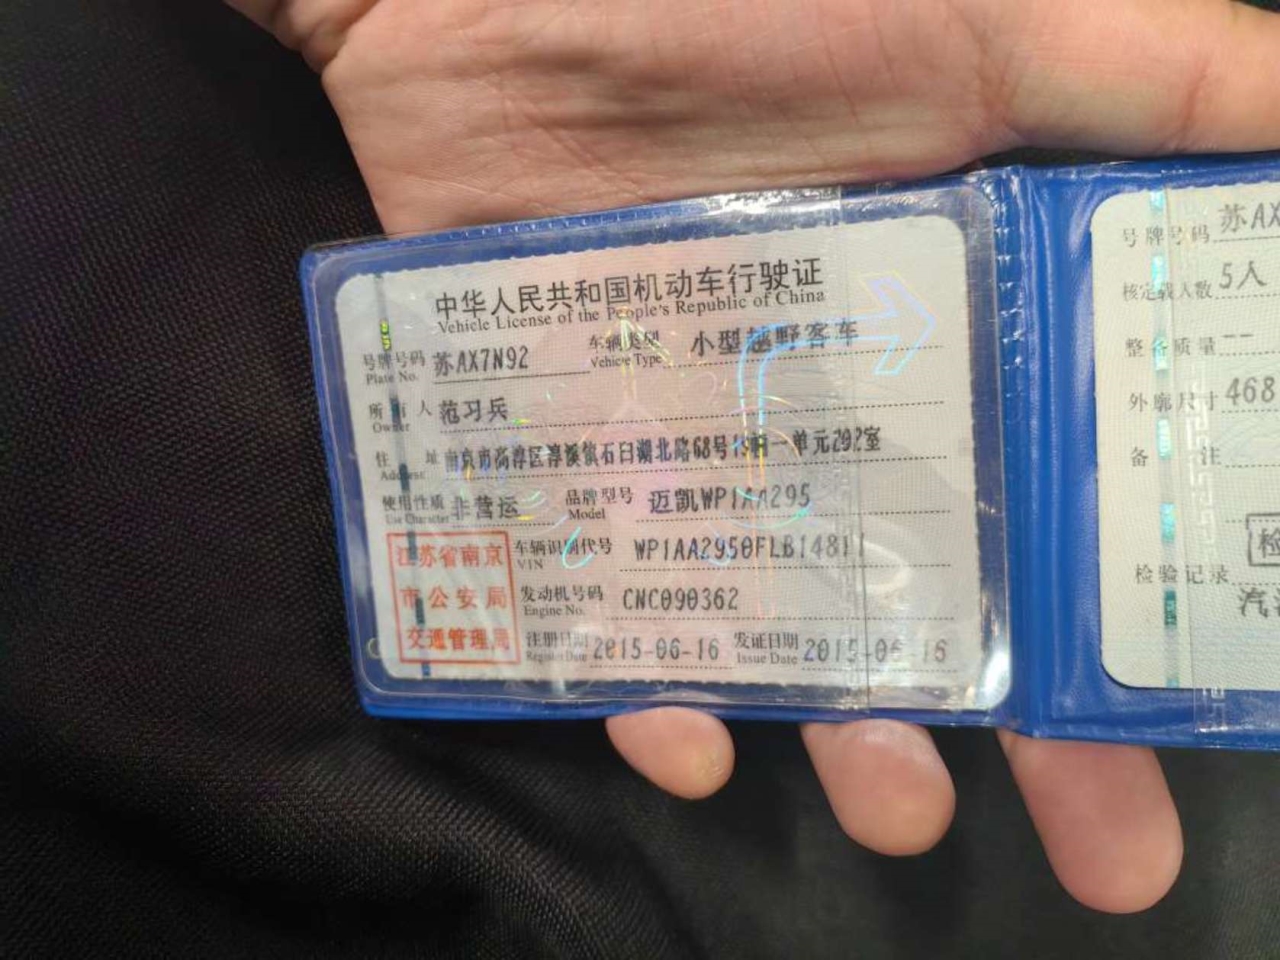 中华人民共和国机动车行驶证
Vehicle License of the People's Republic of China
号牌号码 苏AX7N92 车辆类型 小型越野客车
Plate No. Vehicle Type
所有人 范习兵
Owner
住址 南京市高淳区淳溪镇石臼湖北路68号 一单元292室
Address
使用性质 非营运 品牌型号 迈凯WP1AA295
Use Character Model
江苏省南京 车辆识别代号 WP1AA2950FLB148
VIN
市公安局 发动机号码 CNC090362
Engine No.
交通管理局 注册日期 2015-06-16 发证日期 2015-06-16
Register Date Issue Date
号牌号码 苏AX
核定载人数 5人
整备质量 --
外廓尺寸 468
备注
检
检验记录
汽